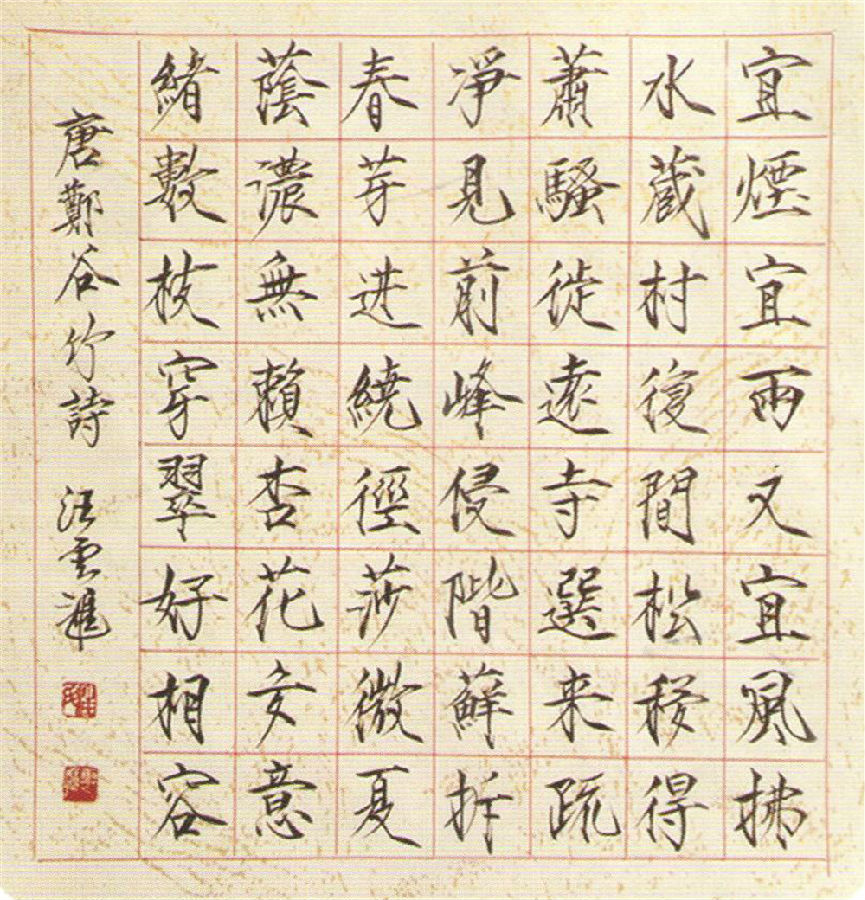 宜煙宜雨又宜風拂
水藏村復間松移得
蕭騷從遠寺選来疏
淨見前峰侵階蘚拆
春芽迸繞徑莎微夏
蔭濃無賴杏花多意
緒數枝穿翠好相容
唐鄭谷竹詩 汪雲